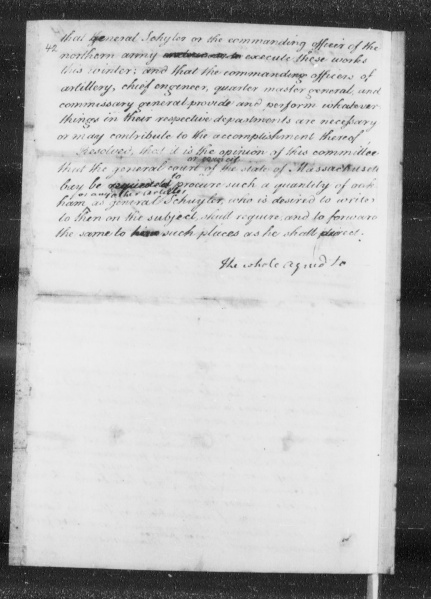 that general Schyler or the commanding officer of the
42
northern army execute these works
this winter; and that the commanding officers of
artillery, chief engineer, quarter master general, and
commissary general provide and perform whatever
things in their respective departments are necessary
or may contribute to the accomplishment thereof
Resolved, that it is the opinion of this committee
that the general court of the state of Massachusets
bey be to procure such a quantity of
or any other articles
as general Schuyler, who is desired to write
to them on the subject, shall require, and to forward
the same to such places as he shall direct.
the whole agreed to